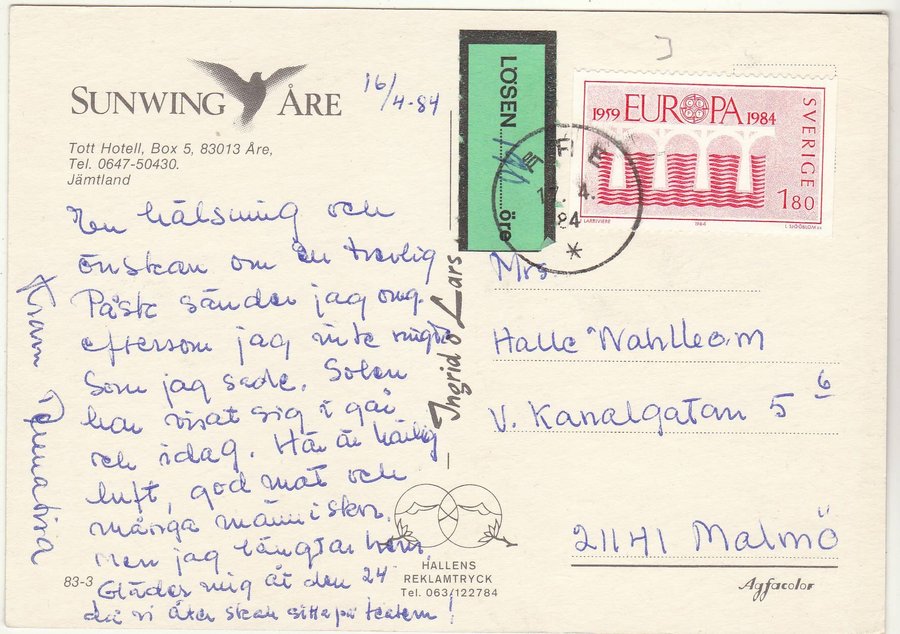 SUNWING ÅRE
16/4-84
Tott Hotell, Box 5, 83013 Åre,
Tel. 0647-50430.
Jämtland
En hälsning och
önskan om en trevlig
Påsk sänder jag
eftersom jag inte ringde
som jag sade. Solen
har visat sig i går
och idag. Här är härlig
luft, god mat och
många människor.
Men jag längtar hem.
Gläder mig åt den 24
då vi åter skall sitta på teatern!
Kram
83-3
Ingrid o Lars
HALLENS
REKLAMTRYCK
Tel. 063/122784
LÖSEN
öre
ÅRE
17.4.
84
*
1959 EUROPA 1984
SVERIGE
1.80
LARRIVIERE
1984
L. SJÖÖBLOM SC
Mrs.
Halle
V. Kanalgatan 5 6
21141 Malmö
Agfacolor